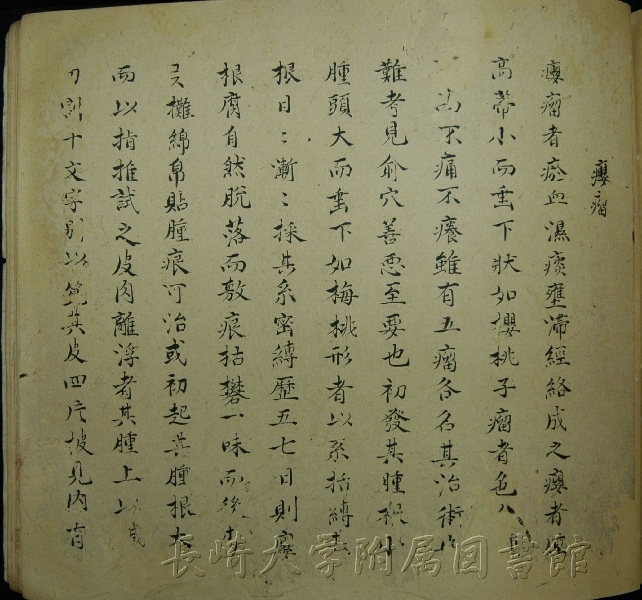 癭瘤
癭瘤者瘀血濕痰壅滯經絡成之癭者
高蒂小而垂下狀如櫻桃子瘤者色
高不痛不癢雖有五瘤各名其治術
難考見俞穴善惡至要也初發其腫根小
腫頭大而垂下如梅桃形者以系括縛其
根日〻漸〻採其系密縛歷五七日則
根腐自然脫落而敷痕枯礬一味而後
攤綿帛貼腫痕可治或初起其腫根大
而以指推試之皮肉離浮者其腫上以
刀割十文字別以其皮四片披見內有
長崎大学附属図書館